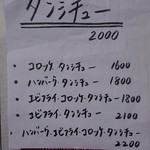 タンシチュー
2000
・コロッケ、タンシチュー 1600
・ハンバーグ、タンシチュー 1800
・エビフライ、コロッケ、タンシチュー 1800
・エビフライ、タンシチュー 2100
・ハンバーグ、エビフライ、コロッケ、タンシチュー
2200